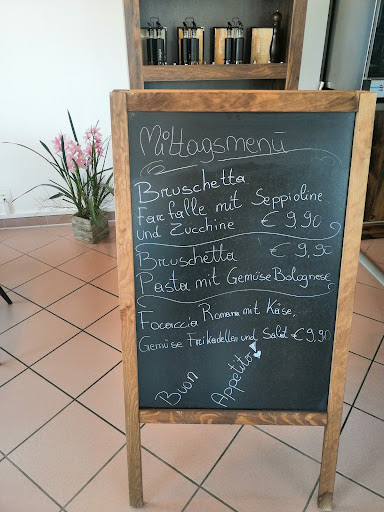 Mittagsmenü
Bruschetta
Farfalle mit Seppioline
und Zucchine € 9,90
Bruschetta € 9,90
Pasta mit Gemüse Bolognese
Focaccia Romana mit Käse,
Gemüse Frikadellen und Salat € 9,90
Buon Appetito